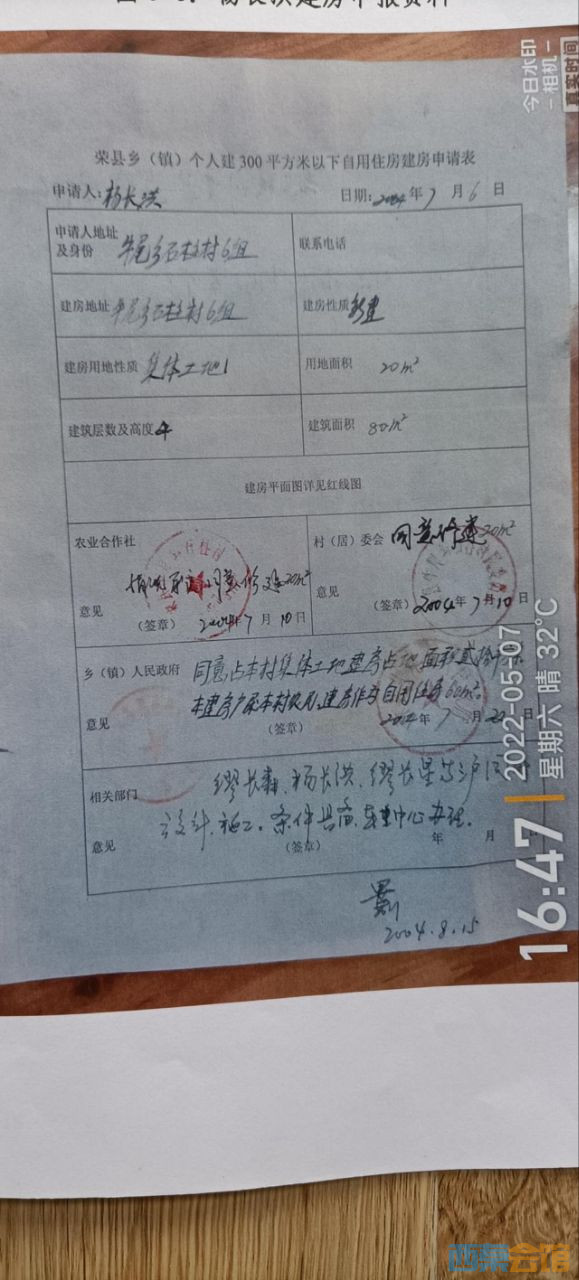 杨长洪建房申报资料
荣县乡（镇）个人建300平方米以下自用住房建房申请表
申请人：杨长洪 日期：2004年7月6日
申请人地址及身份 牛尾乡石柱村6组 联系电话
建房地址 牛尾乡石柱村6组 建房性质 新建
建房用地性质 集体土地 用地面积 20m²
建筑层数及高度 4 建筑面积 80m²
建房平面图详见红线图
农业合作社 村（居）委会 同意修建20m²
同意修建20m²
意见 意见
（签章）2004年7月10日 （签章）2004年7月10日
乡（镇）人民政府 同意占本村集体土地建房占地面积贰拾
本建房户系本村农民,建房作为自用住房
意见 （签章） 2004年7月20日
相关部门 缪长森、杨长洪、缪长星
设计、施工。条件具备,中心办理。
意见 （签章） 年 月
2004.8.15
今日水印
相机
真实时间
16:47
2022-05-07
星期六 晴 32℃
西祠会馆